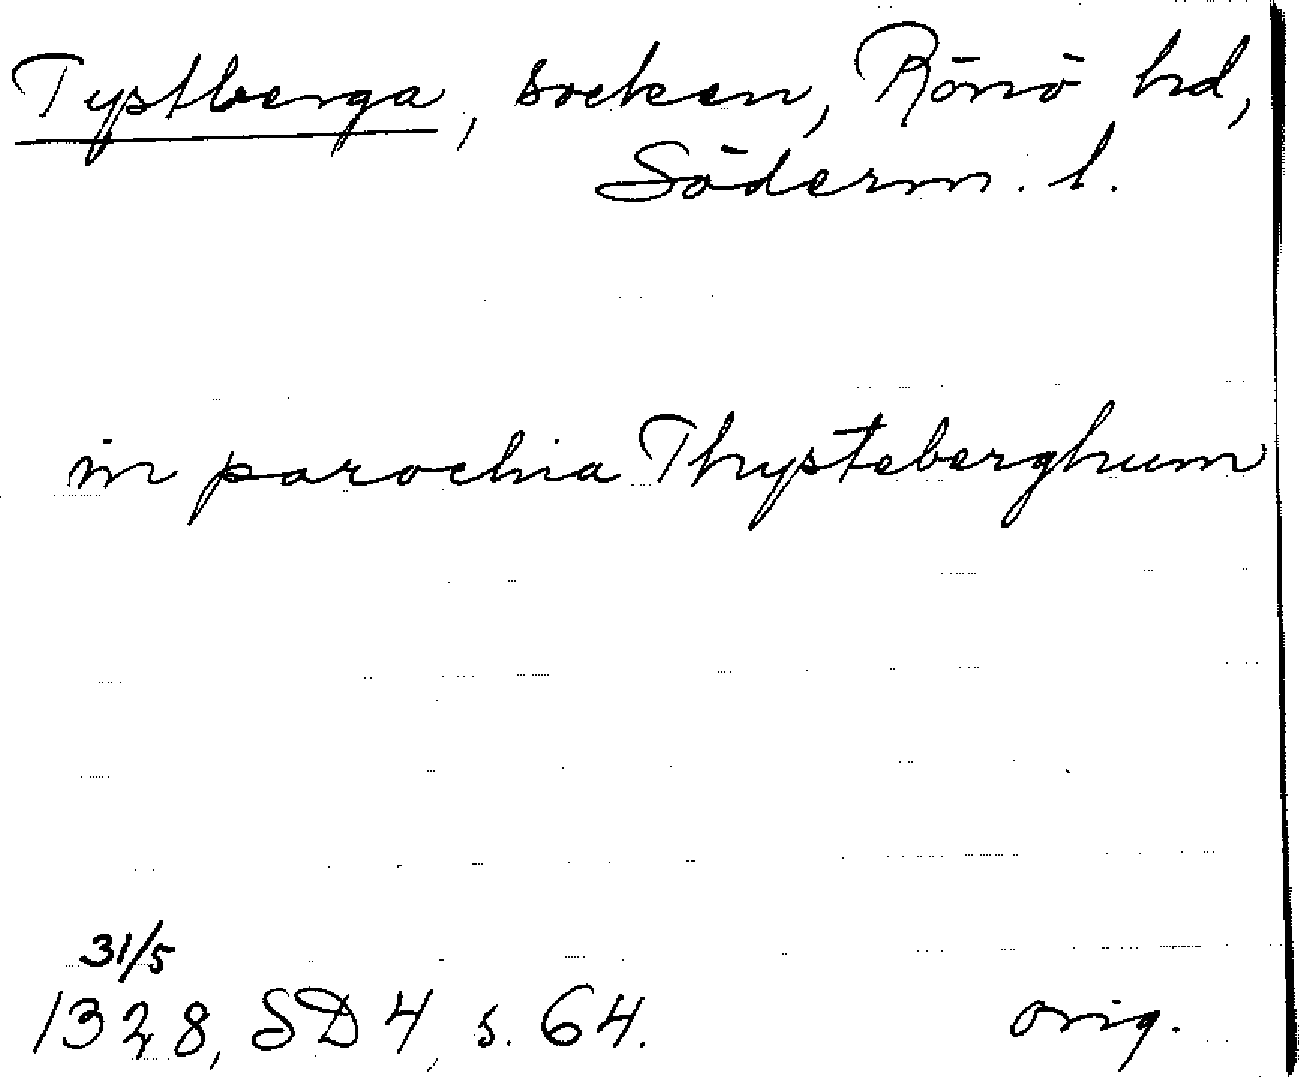 Tystberga, socken, Rönö hd,
Söderm. l.
in parochia Thysteberghum
31/5
1328, SD 4, s. 64.
orig.